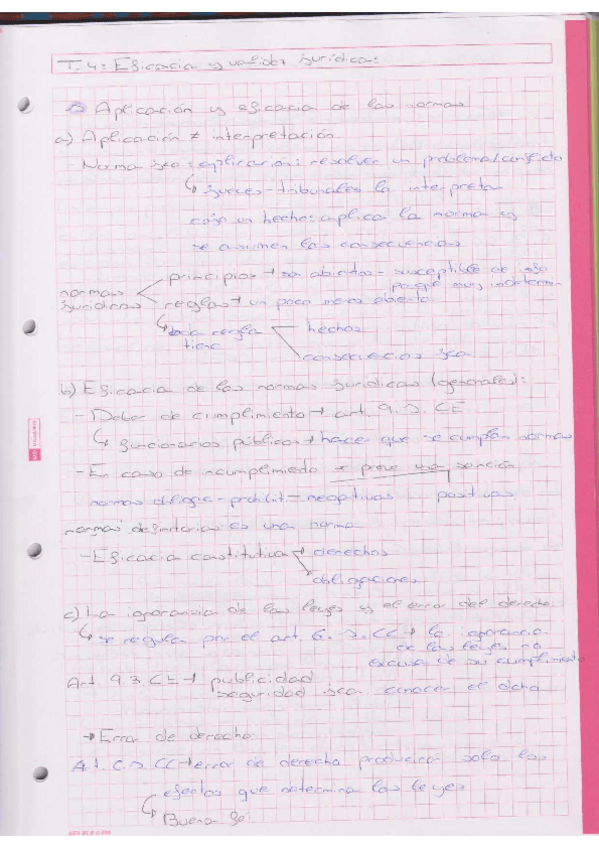 T. 4: Eficacia y validez jurídica:
Aplicación y eficacia de las normas
a) Aplicación ≠ interpretación
- Norma jca: aplicación: resolver un problema/conflicto
↳ jueces - tribunales la interpreta
caso un hecho: aplica la norma y
se asumen las consecuencias
normas jurídicas
principios → son abiertos = susceptible de
porque muy indetermin
reglas → un poco menos abierto
↳ cada regla tiene
hechos
consecuencias jca
b) Eficacia de las normas jurídicas (generales):
- Deber de cumplimiento → art. 9.1. CE
↳ funcionarios públicos → hacer que se cumplan normas
- En caso de incumplimiento se prevé una sanción
normas obliga - prohibit = negativas positivas
normas definitorias es una norma
- Eficacia constitutiva → derechos
→ obligaciones
c) La ignorancia de las leyes y el error del derecho
↳ se regula por el art. 6.1. CC → la ignorancia
de las leyes no
excusa de su cumplimiento
Art. 9.3 CE → publicidad
seguridad jca conocer el dcho
→ Error de derecho
Art. 6.1 CC → error de derecho producirá solo los
efectos que determina las leyes
↳ Buena fe